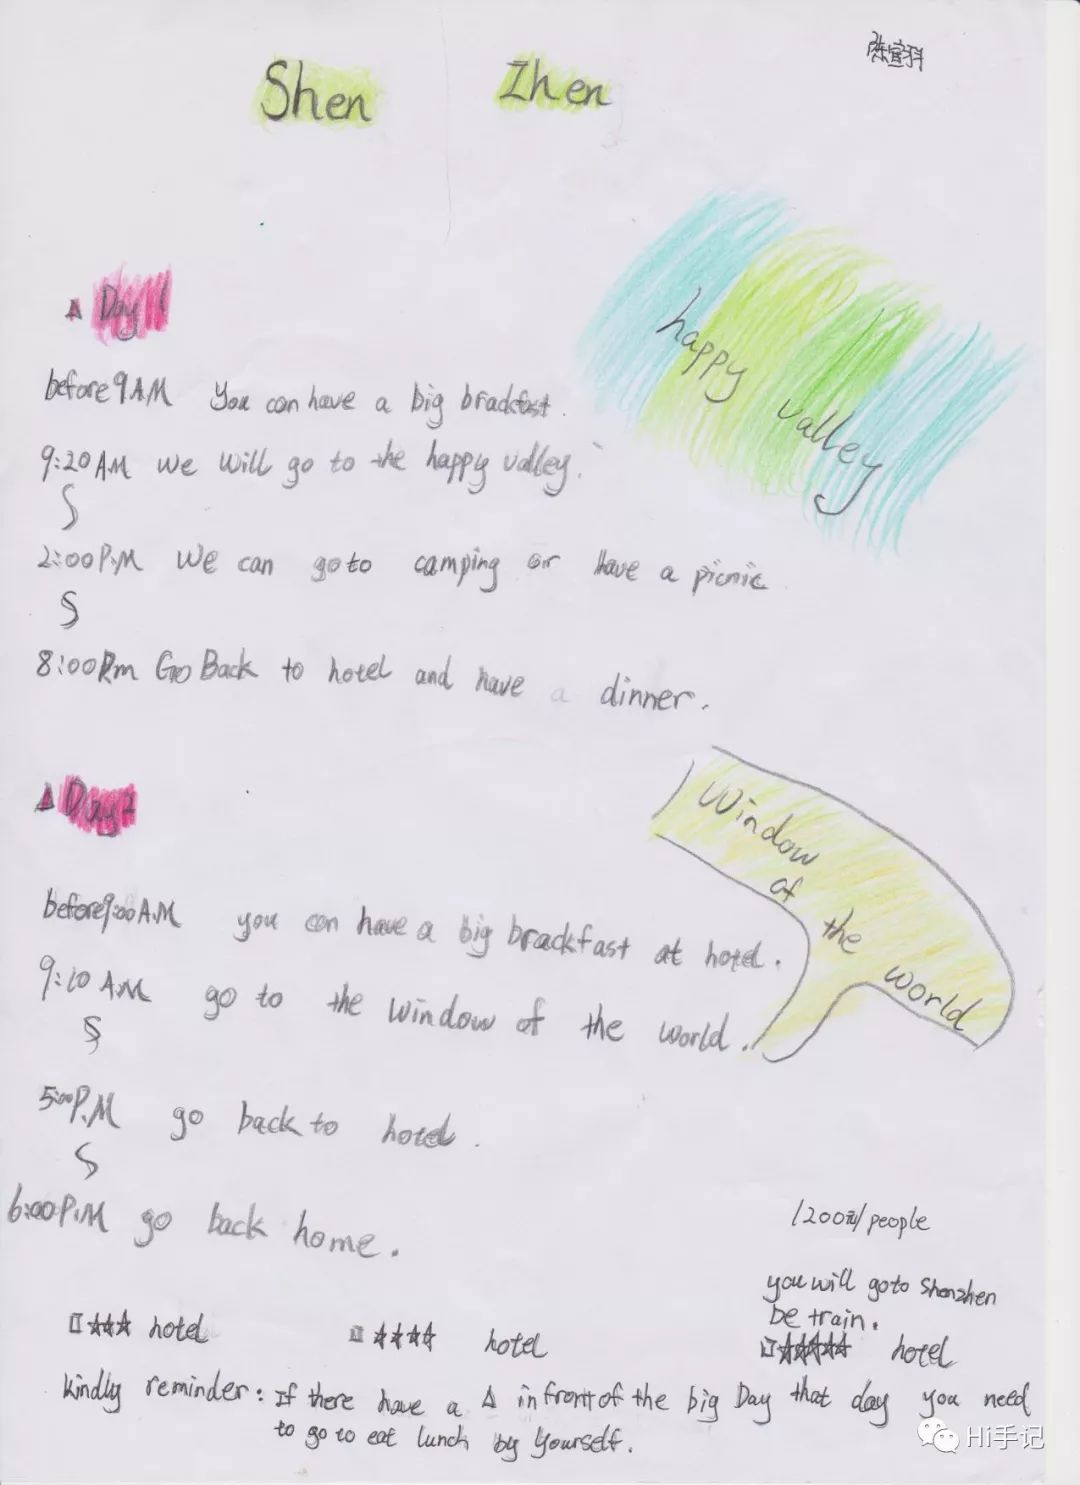 陈宣科
Shen Zhen
happy valley
△ Day 1
before 9 AM You can have a big brackfast.
9:20 AM we will go to the happy valley.
2:00 P.M We can go to camping or have a picnic
8:00 P.m Go Back to hotel and have a dinner.
△ Day 2
Window of the world
before 9:00 A.M you can have a big brackfast at hotel.
9:10 AM go to the window of the world.
5:00 P.M go back to hotel.
6:00 P.M go back home.
1200元/people
you will go to Shenzhen
be train.
□ ☆☆☆ hotel □ ☆☆☆☆ hotel □ ☆☆☆☆☆ hotel
kindly reminder: If there have a △ in front of the big Day that day you need
to go to eat lunch by yourself.
Hi手记